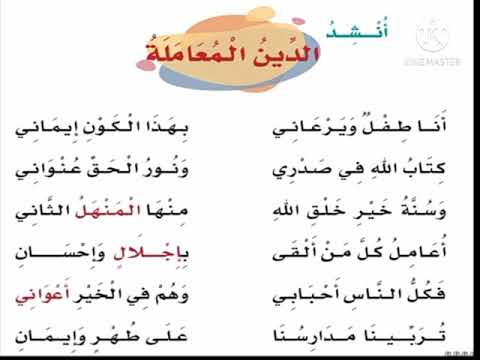 أُنْشِدُ
الدِّينُ الْمُعَامَلَةُ
KINEMASTER
أَنَا طِفْلٌ وَيَرْعَانِي بِهَذَا الْكَوْنِ إِيمَانِي
كِتَابُ اللهِ فِي صَدْرِي وَنُورُ الْحَقِّ عُنْوَانِي
وَسُنَّةُ خَيْرِ خَلْقِ اللهِ مِنْهَا الْمَنْهَلُ الثَّانِي
أُعَامِلُ كُلَّ مَنْ أَلْقَى بِإِجْلَالٍ وَإِحْسَانِ
فَكُلُّ النَّاسِ أَحْبَابِي وَهُمْ فِي الْخَيْرِ أَعْوَانِي
تُرَبِّينَا مَدَارِسُنَا عَلَى طُهْرٍ وَإِيمَانِ